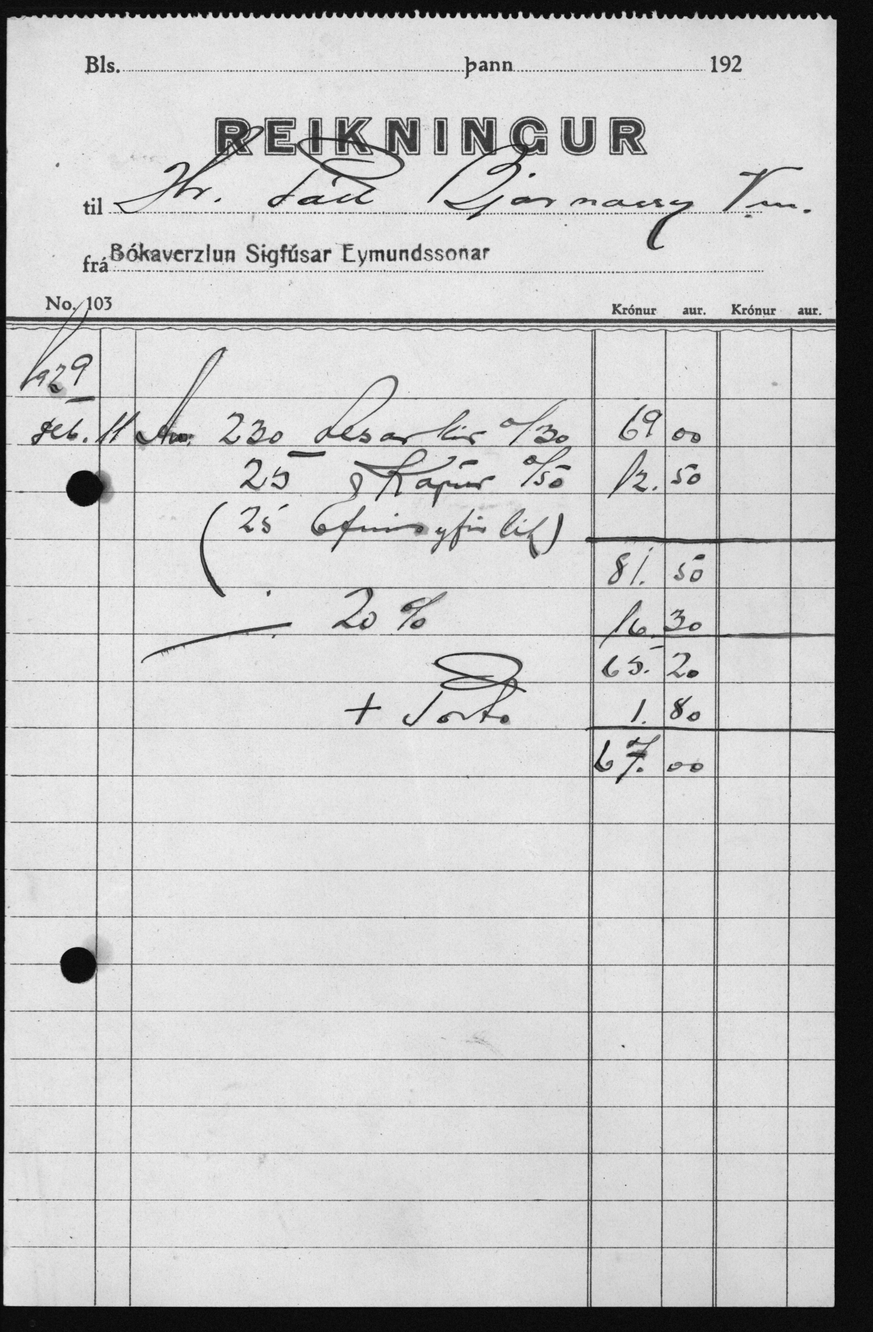 Bls. þann 192
REIKNINGUR
til Hr. Páll Bjarnason Vm.
frá Bókaverzlun Sigfúsar Eymundssonar
No. 103
Krónur aur. Krónur aur.
1929
Feb. 11 230 Lesarkir a/30 69 00
25 Kápur a/50 12.50
(25 Efnisyfirlit)
81. 50
20 % 16.30
65. 20
+ Porto 1. 80
67. 00